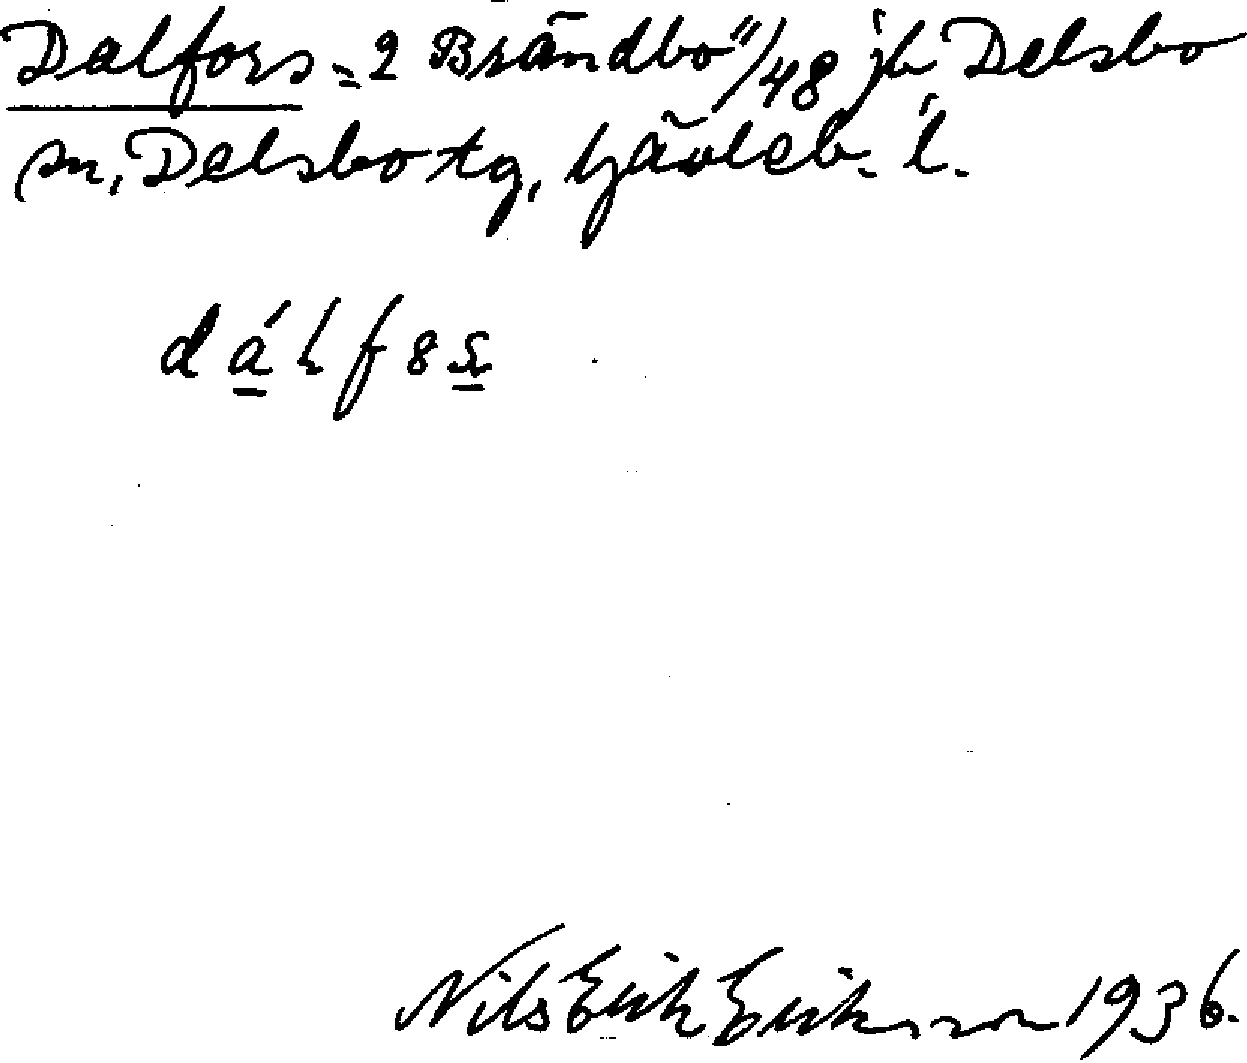 Dalfors = 2 Brändbo "/48 jb Delsbo
sn, Delsbo tg, Gävleb. l.
dálf8s
Nils Erik Eriksson 1936.